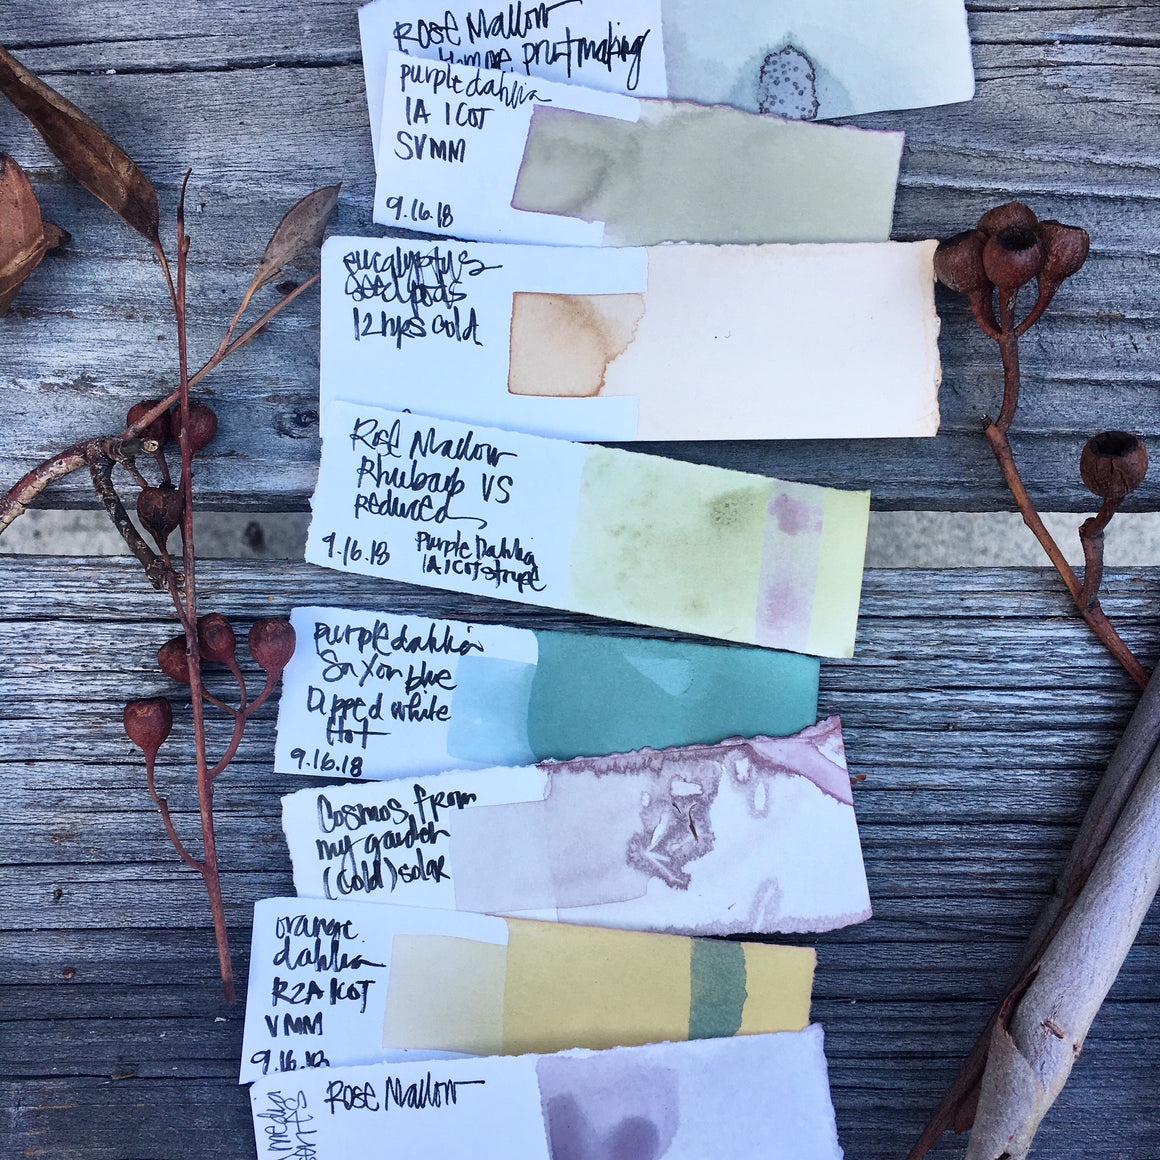 Rose Mallow
printmaking
purple dahlia
1A 1COT
SVMM
9.16.18
eucalyptus
seedpods
12 hrs cold
Rose Mallow
Rhubarb VS
Reduced
9.16.18
Purple Dahlia
1A1COT stripe
purple dahlia
Saxon blue
Dipped white
Hot
9.16.18
Cosmos from
my garden
(cold) solar
orange
dahlia
R2A 1COT
VMM
9.16.18
Rose Mallow
media